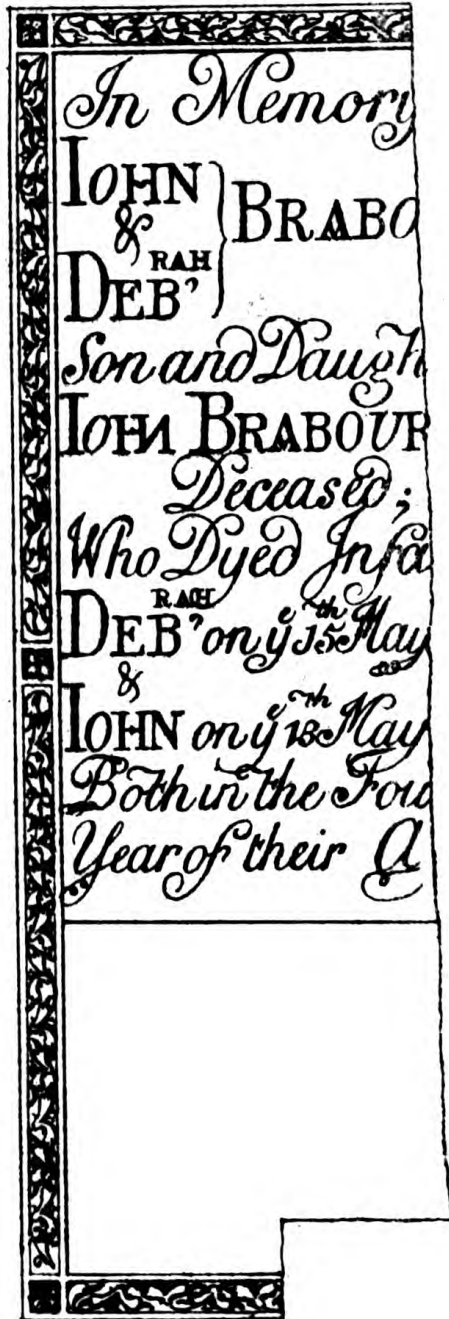 In Memory
IOHN
& } BRABO
DEB'RAH
Son and Daugh
IOHN BRABOUR
Deceased;
Who Dyed Infa
DEB'RAH on yᵉ 15th May
&
IOHN on yᵉ 18th May
Both in the Fou
Year of their A